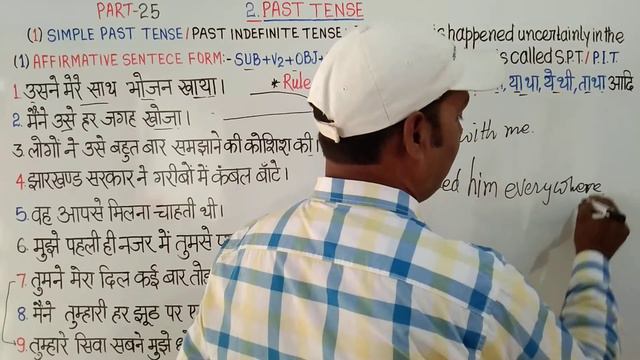 PART-25 2. PAST TENSE
(1) SIMPLE PAST TENSE/PAST INDEFINITE TENSE: happened uncertainly in the
is called S.P.T./P.I.T.
(1) AFFIRMATIVE SENTECE FORM:- SUB+V2+OBJ+ या था, ये थी, ता था आदि
1. उसने मेरे साथ भोजन खाया। * Rule with me.
2. मैंने उसे हर जगह खोजा। him everywhere
3. लोगों ने उसे बहुत बार समझाने की कोशिश की।
4. झारखण्ड सरकार ने गरीबों में कंबल बाँटे।
5. वह आपसे मिलना चाहती थी।
6. मुझे पहली ही नजर में तुमसे
7. तुमने मेरा दिल कई बार
8. मैंने तुम्हारी हर झूठ पर
9. तुम्हारे सिवा सबने मुझे